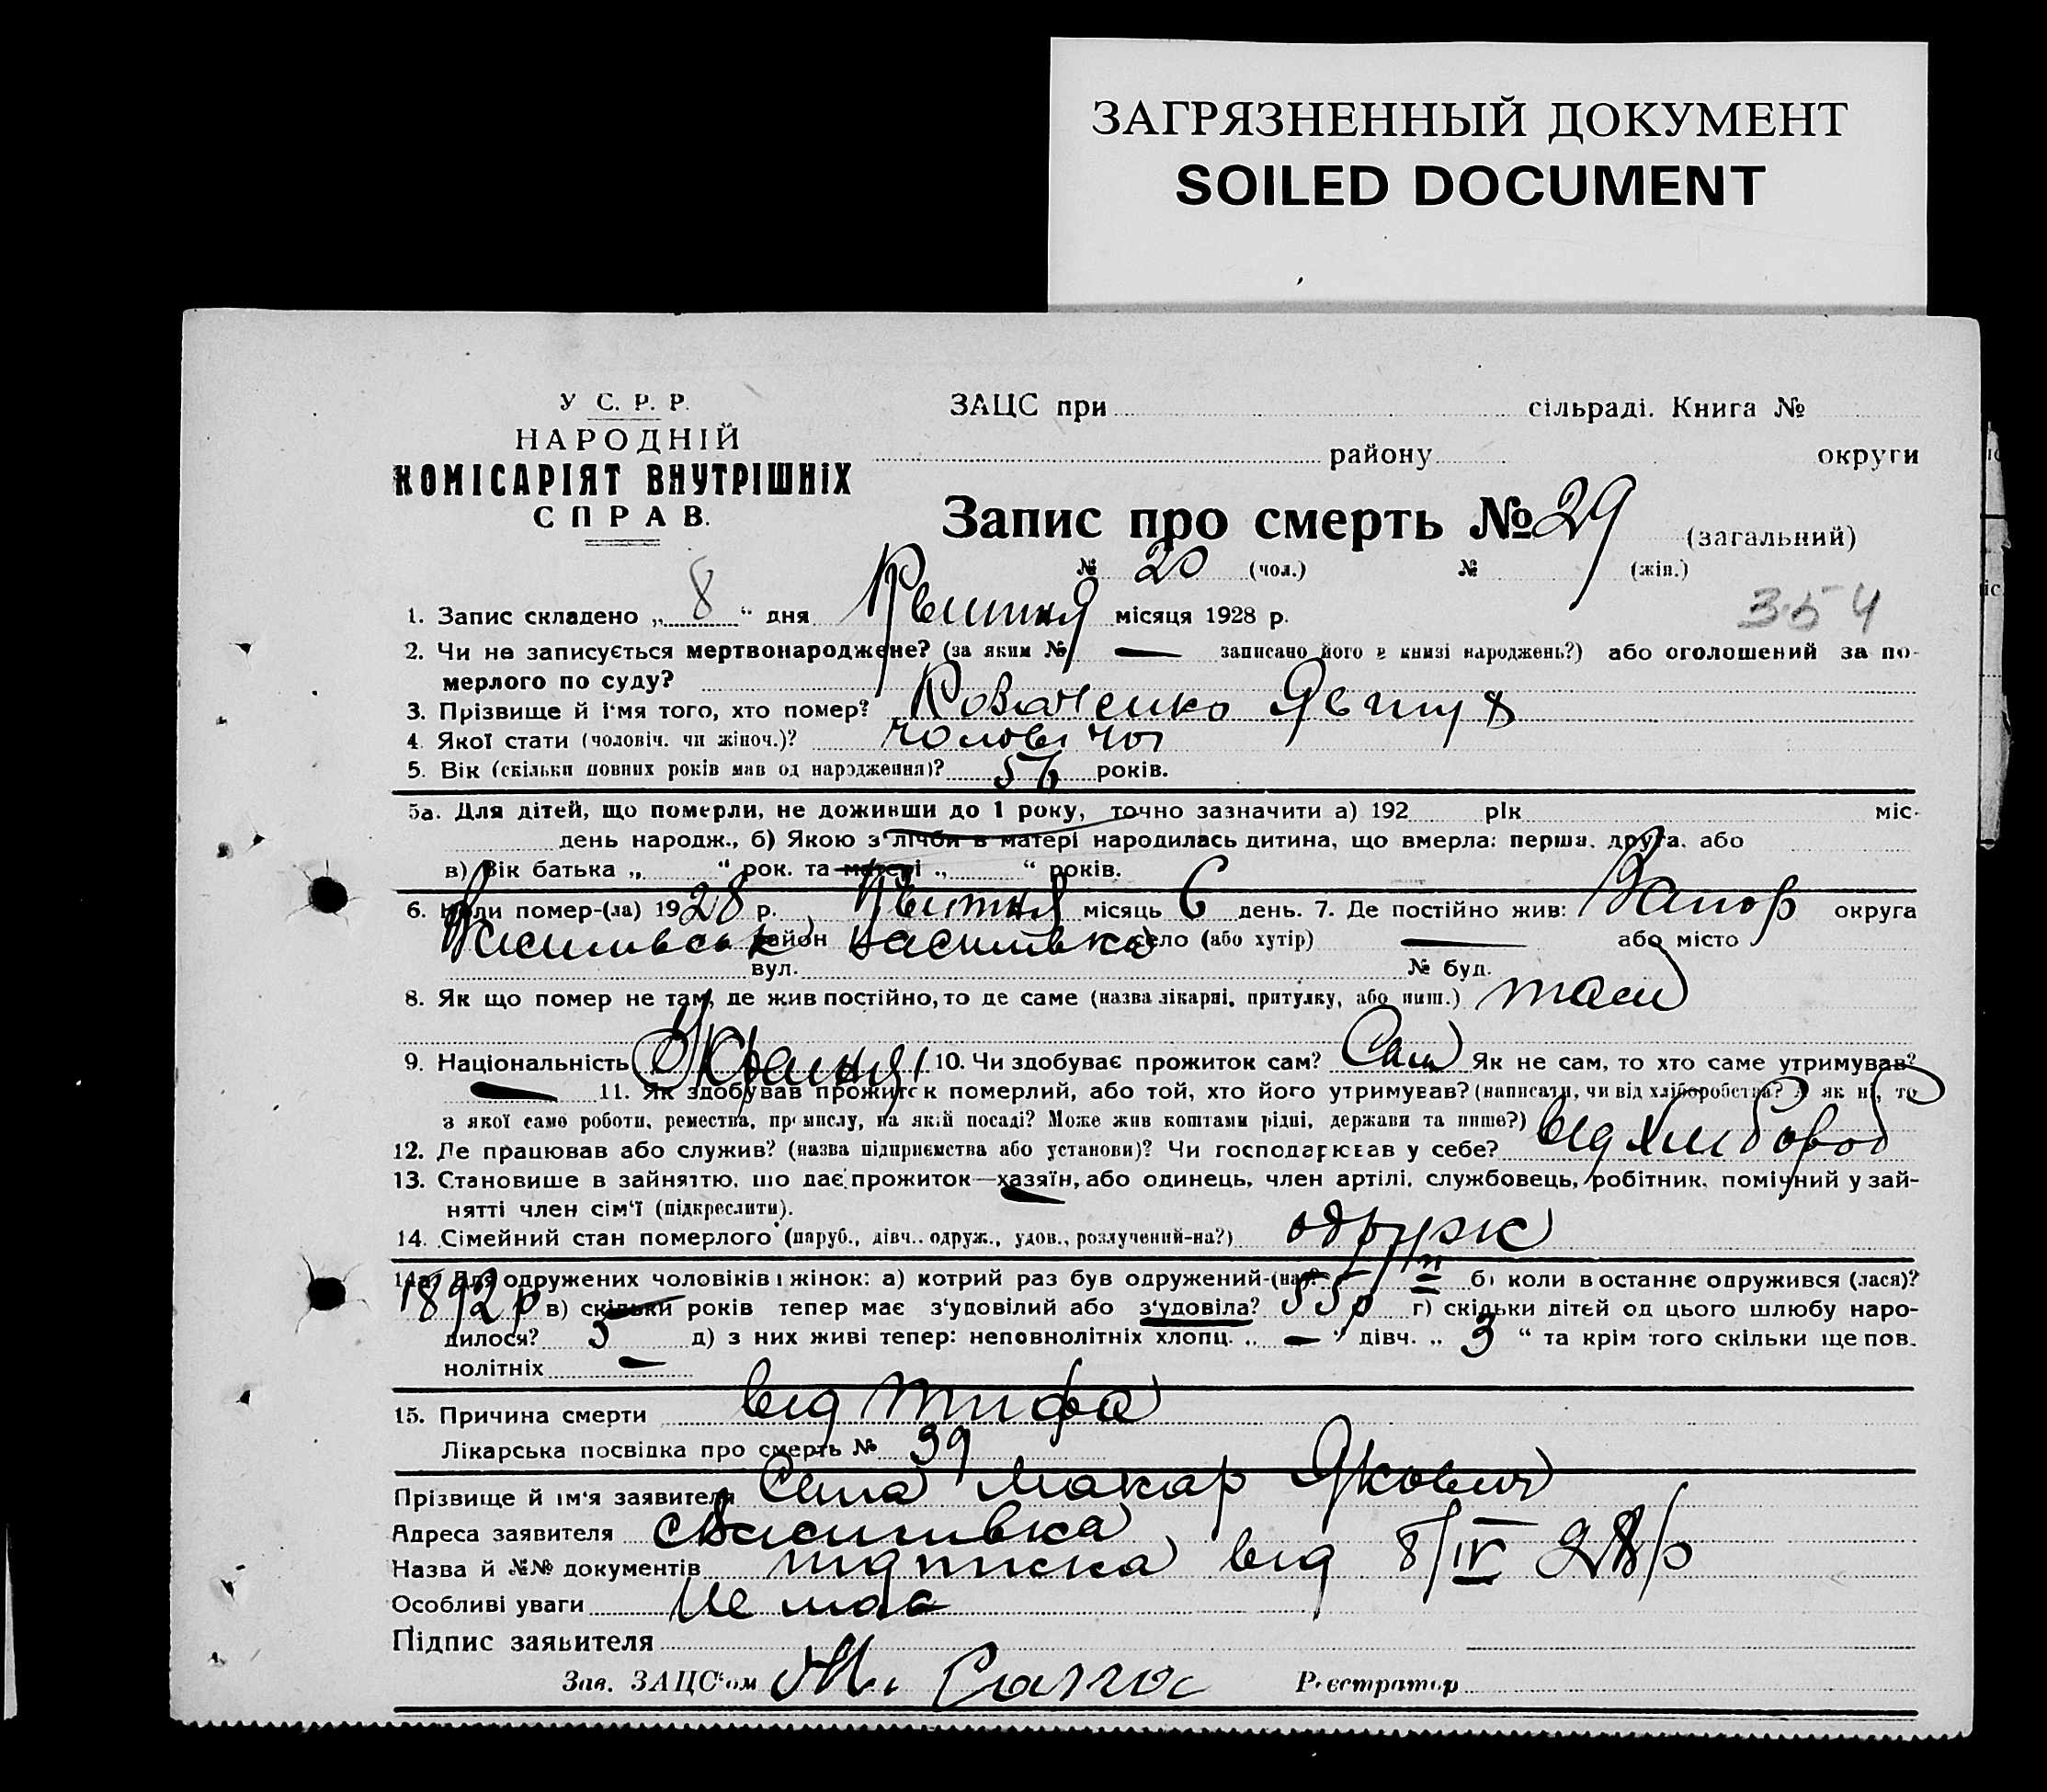 ЗАГРЯЗНЕННЫЙ ДОКУМЕНТ
SOILED DOCUMENT
У С. Р. Р.
НАРОДНІЙ
КОМІСАРІЯТ ВНУТРІШНІХ
СПРАВ.
ЗАЦС при сільраді. Книга №
району округи
Запис про смерть № 29 (загальний)
№ 20 (чол.) № (жін.)
354
1. Запис складено „ 8 “ дня Квитня місяця 1928 р.
2. Чи не записується мертвонароджене? (за яким № — записано його в книзі народжень?) або оголошений за по-
мерлого по суду?
3. Прізвище й і'мя того, хто помер? Коваленко
4. Якої стати (чоловіч. чи жіноч.)? чоловічоі
5. Вік (скільки повних років мав од народження)? 56 років.
5а. Для дітей, що померли, не доживши до 1 року, точно зазначити а) 192 рік міс-
день народж., б) Якою з лічби в матері народилась дитина, що вмерла: перша, друга, або
в) Вік батька „ “ рок. та матері „ “ років.
6. Коли помер-(ла) 1928 р. Квитня місяць 6 день. 7. Де постійно жив: Запор округа
Василівськ район Василівка село (або хутір) — або місто
вул. № буд.
8. Як що помер не там, де жив постійно, то де саме (назва лікарні, притулку, або инш.) там
9. Національність 10. Чи здобуває прожиток сам? Сам Як не сам, то хто саме утримував?
— 11. Як здобував прожиток померлий, або той, хто його утримував? (написати, чи від хліборобства? А як ні, то
з якої само роботи, ремества, промислу, на якій посаді? Може жив коштами рідні, держави та инше?)
12. Де працював або служив? (назва підприємства або установи)? Чи господарював у себе? від хлибороб
13. Становище в зайняттю, що дає прожиток—хазяїн, або одинець, член артілі, службовець, робітник, помічний у зай-
нятті член сім'ї (підкреслити).
14. Сімейний стан померлого (паруб., дівч., одруж., удов., розлучений-на?) одруж
14а. Для одружених чоловіків і жінок: а) котрий раз був одружений-(на)? б) коли востаннє одружився (лася)?
1892 р в) скільки років тепер має з'удовілий або з'удовіла? 55 р г) скільки дітей од цього шлюбу наро-
дилося? 5 д) з них живі тепер: неповнолітніх хлопц. „ — “ дівч. „ 3 “ та крім того скільки ще пов-
нолітніх —
15. Причина смерти від тифа
Лікарська посвідка про смерть № 39
Прізвище й ім'я заявителя Макар Якович
Адреса заявителя с Василивка
Назва й №№ документів підписка від 8/IV 28 р
Особливі уваги Не має
Підпис заявителя
Зав. ЗАЦС'ом Реєстратор